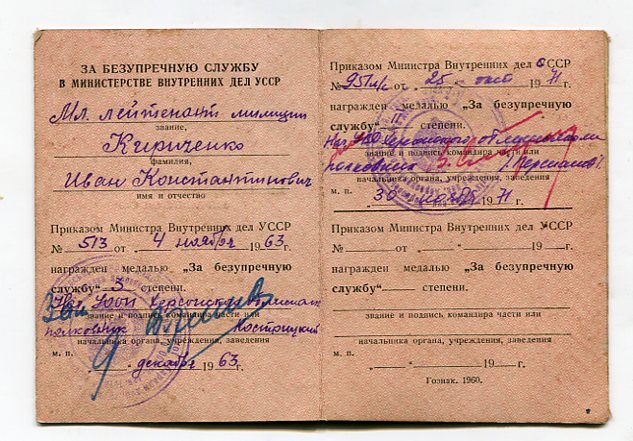 ЗА БЕЗУПРЕЧНУЮ СЛУЖБУ
В МИНИСТЕРСТВЕ ВНУТРЕННИХ ДЕЛ УССР
Мл. лейтенант милиции
звание,
Кириченко
фамилия,
Иван Константинович
имя и отчество
Приказом Министра Внутренних дел УССР
№ 513 от 4 ноября 1963 г.
награжден медалью „За безупречную
службу" 3 степени.
Нач. УООП Херсонского
звание и подпись командира части или
полковник Кострицкий
начальника органа, учреждения, заведения
м. п.
декабря 1963 г.
Приказом Министра Внутренних дел СССР
№ 951 л/с от 25 окт 1971 г.
награжден медалью „За безупречную
службу" II степени.
Нач. УВД Херсонского облисполкома
звание и подпись командира части или
полковник
начальника органа, учреждения, заведения
м. п. 30 ноября 1971 г.
Приказом Министра Внутренних дел УССР
№ от 19 г.
награжден медалью „За безупречную
службу" степени.
звание и подпись командира части или
начальника органа, учреждения, заведения
м. п. 19 г.
Гознак. 1960.